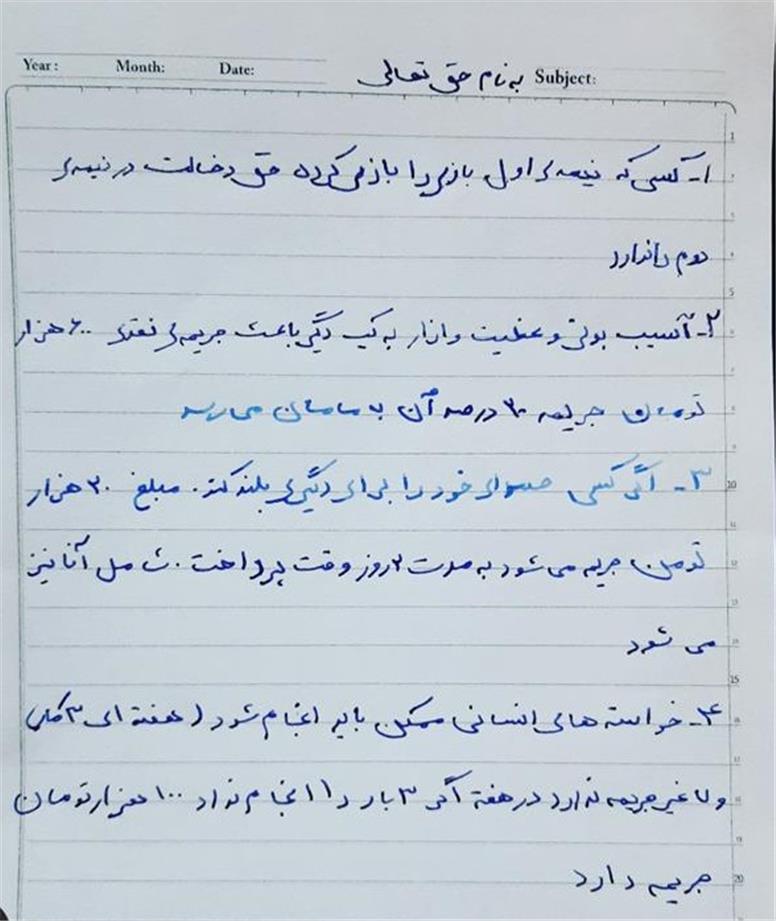 Year: Month: Date: به نام حق تعالی Subject:
۱- کسی که نیمه‌ی اول بازی را باز می کرده حق دخالت در نیمه‌ی
دوم را ندارد
۲- آسیب بدنی و عظیت و ازار به یک دیگر باعث جریمه‌ی نقدی ۶۰۰ هزار
تومان جریمه ۳۰ درصد آن به سامان می رسد
۳- اگر کسی صدای خود را برای دیگری بلند کند. مبلغ ۳۰ هزار
تومان جریمه می شود به مدت ۲ روز وقت پرداخت. شامل آنا نیز
می شود
۴- خواسته های انسانی ممکن باید انجام شود (هفته ای ۳ کار)
و لا غیر جریمه ندارد در هفته اگر ۳ بار را انجام نداد ۱۰۰ هزار تومان
جریمه دارد